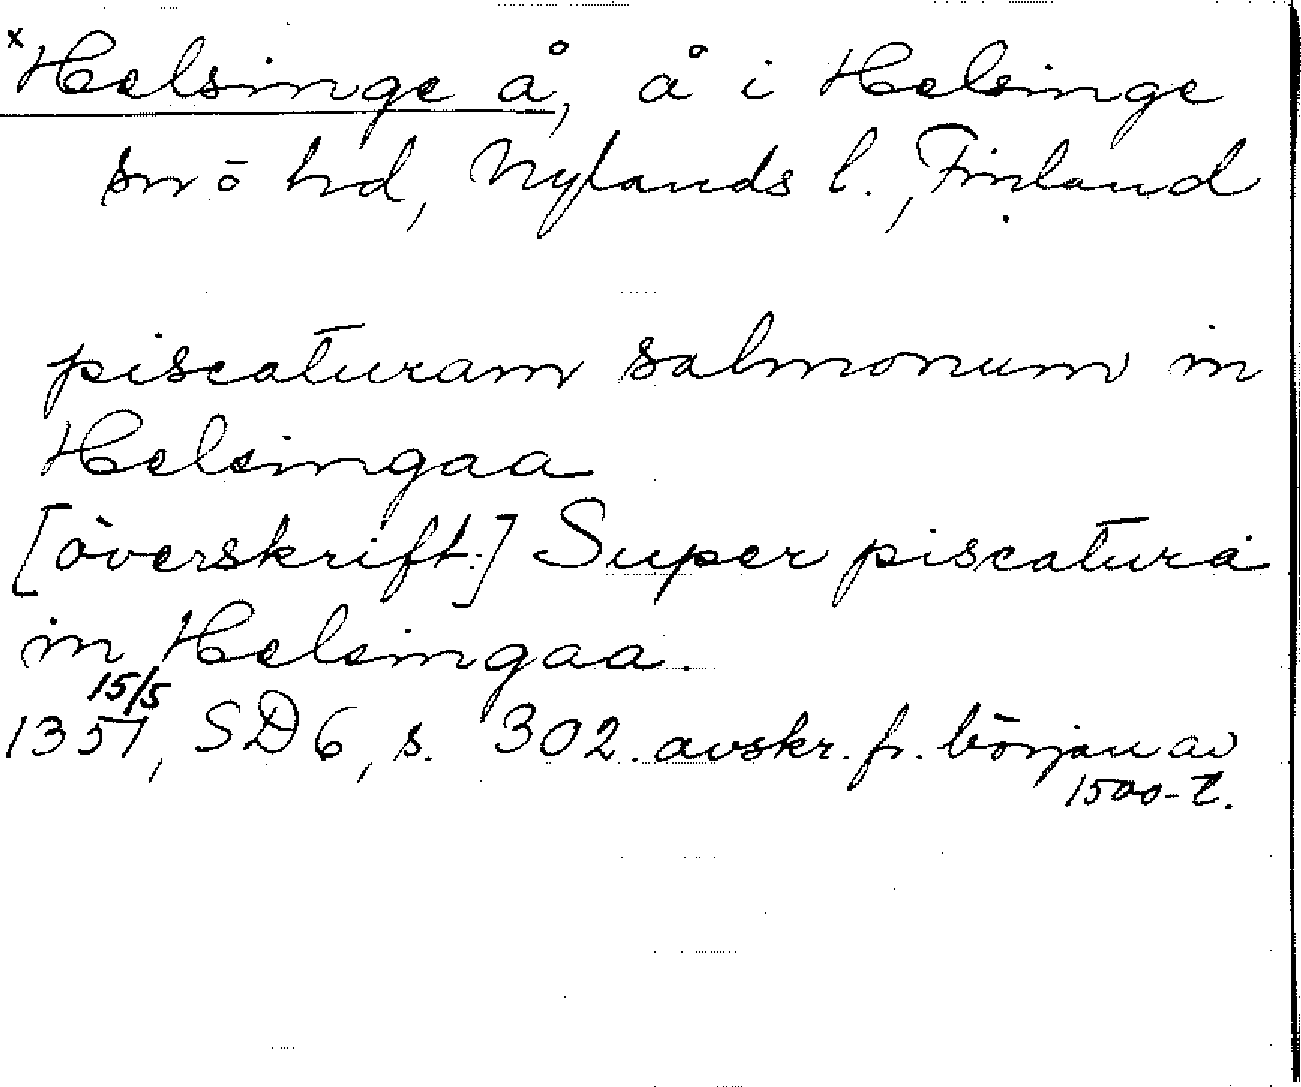 x Helsinge å, å i Helsinge
sn ö hd, Nylands l., Finland
piscaturam salmonum in
Helsingaa
[överskrift:] Super piscatura
in Helsingaa.
15/5
1351, SD 6, s. 302. avskr. fr. början av
1500-t.